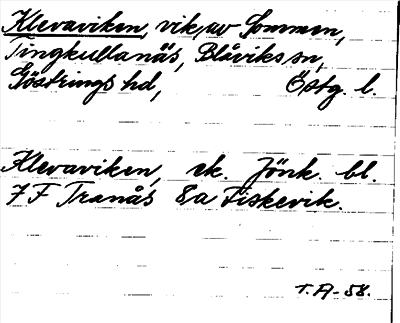 Klevaviken, vik av Sommen,
Tingkullanäs, Blåviks sn,
Göstrings hd, Östg. l.
Klevaviken, ek. Jönk. bl.
7 F Tranås 8a Fiskevik.
T. A-58.